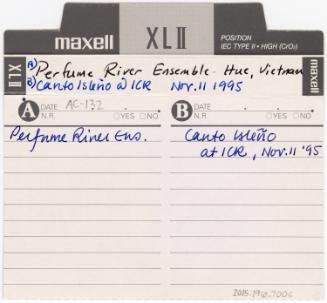 maxell XLII POSITION
IEC TYPE II • HIGH (CrO₂)
XLII
A) Perfume River Ensemble - Hue, Vietnam
B) Canto Isleño @ ICR Nov. 11 1995
maxell
A DATE AC-132
N.R. YES NO
B DATE
N.R. YES NO
Perfume River Ens.
Canto Isleño
at ICR, Nov. 11 '95
2015.196.7006